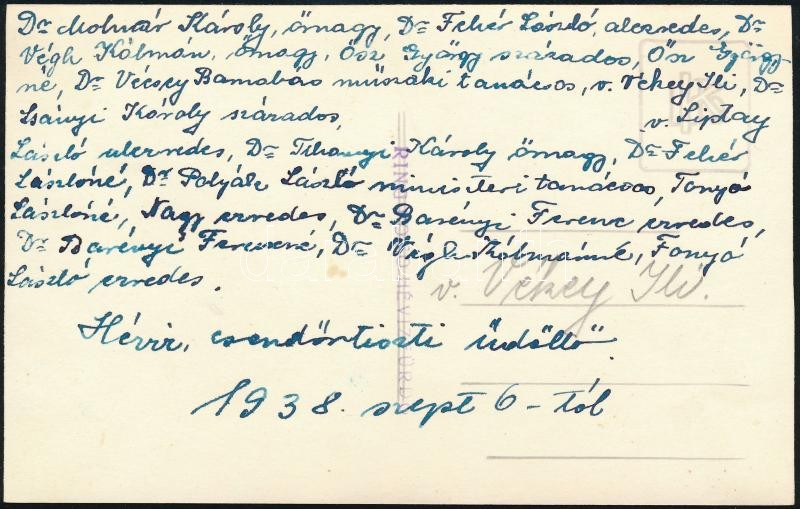 Dr Molnár Károly, őrnagy, Dr Fehér László, alezredes, Dr
Végh Kálmán, őrnagy, Ősz György százados, Ősz György
né, Dr Vécsey Barnabás műszaki tanácsos, v. Vékey Ili, Dr
Csányi Károly százados, v. Liptay
László alezredes, Dr Tihanyi Károly őrnagy, Dr Fehér
Lászlóné, Dr Polyák László miniszteri tanácsos, Fonyó
Lászlóné, Nagy ezredes, Dr Barényi Ferenc ezredes,
Dr Barényi Ferencné, Dr Végh Kálmánné, Fonyó
László ezredes.
v. Vékey Ili.
Hévíz, csendőrtiszti üdülő
1938. szept 6-tól